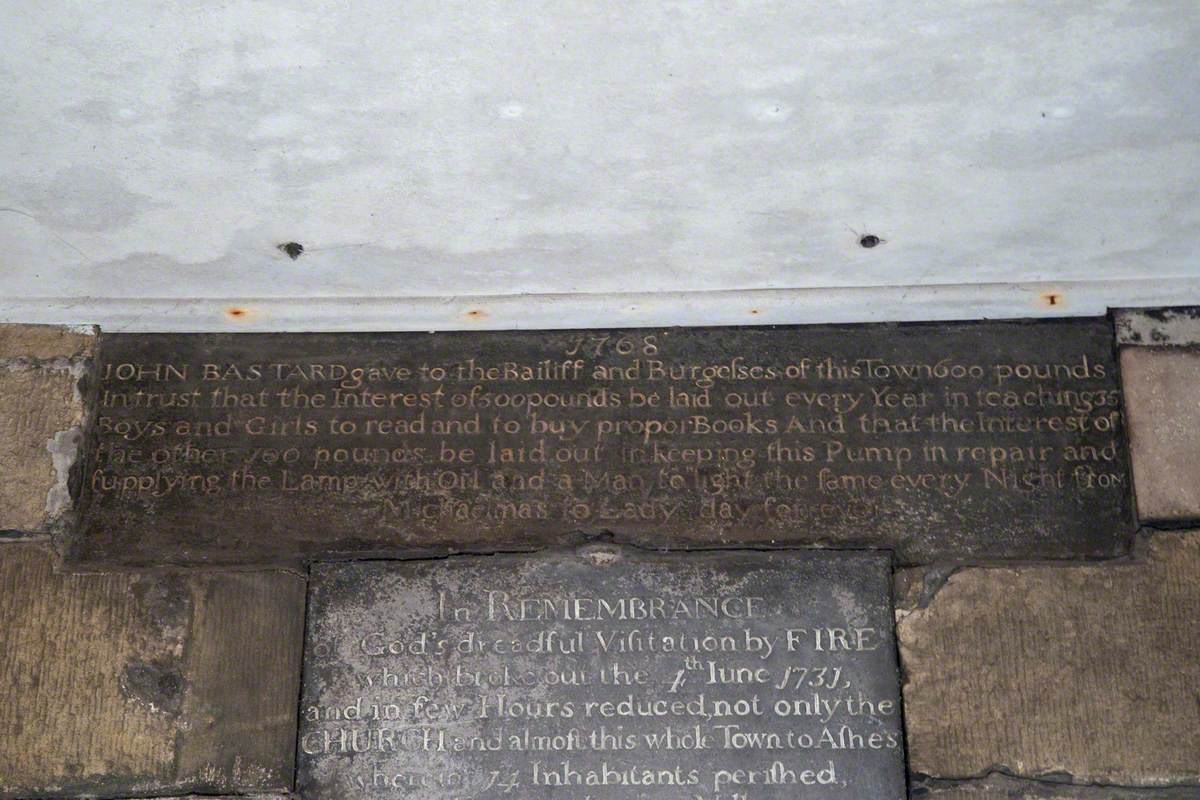 1768
JOHN BASTARD gave to the Bailiff and Burgeſses of this Town 600 pounds
In trust that the Interest of 500 pounds be laid out every Year in teaching 35
Boys and Girls to read and to buy propor Books And that the Interest of
the other 100 pounds be laid out in keeping this Pump in repair and
ſupplying the Lamp with Oil and a Man to light the ſame every Night from
Michaelmas to Lady day for ever
In REMEMBRANCE
of God's dreadful Viſitation by FIRE
which broke out the 4th Iune 1731,
and in few Hours reduced, not only the
CHURCH and almoſt this whole Town to Aſhes
wherein 14 Inhabitants periſhed,